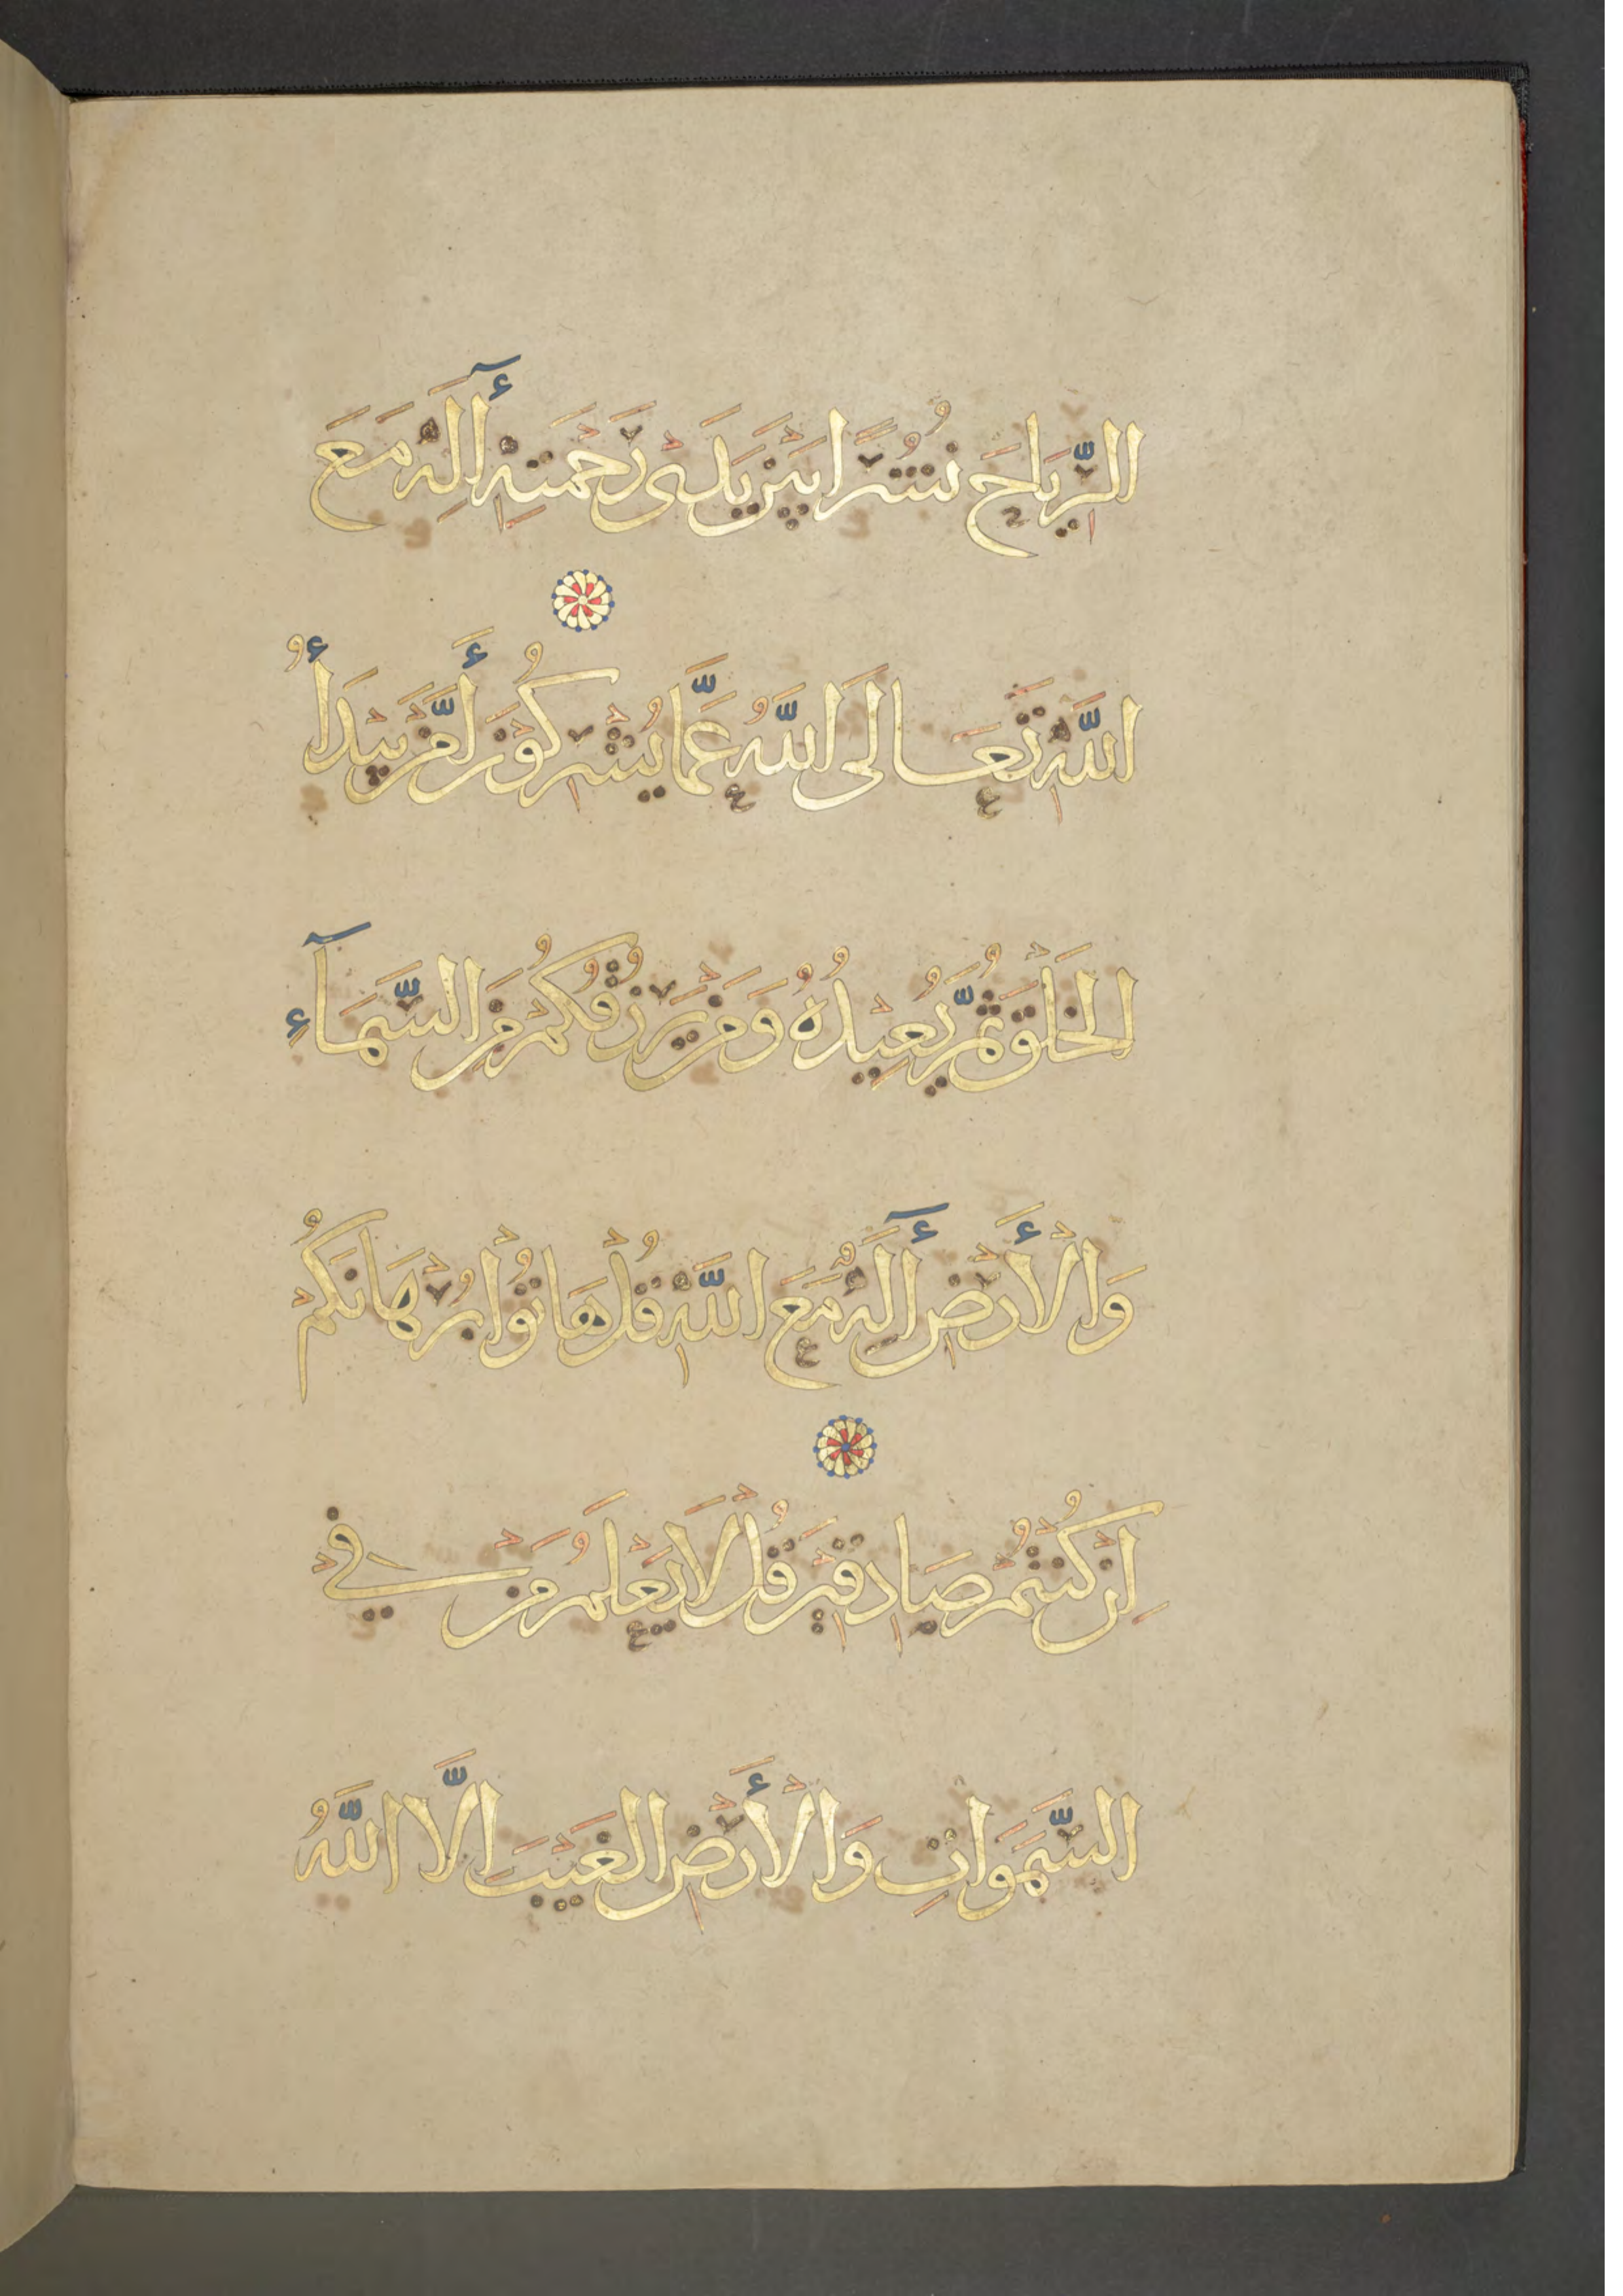 الرِّيَاحَ نُشُرًا بَيْنَ يَدَىْ رَحْمَتِهِ أَإِلَهٌ مَعَ
اللَّهِ تَعَالَى اللَّهُ عَمَّا يُشْرِكُونَ أَمَّنْ يَبْدَأُ
الْخَلْقَ ثُمَّ يُعِيدُهُ وَمَنْ يَرْزُقُكُمْ مِنَ السَّمَآءِ
وَالْأَرْضِ أَإِلَهٌ مَعَ اللَّهِ قُلْ هَاتُوْا بُرْهَانَكُمْ
إِنْ كُنْتُمْ صَادِقِينَ قُلْ لَا يَعْلَمُ مَنْ فِي
السَّمَوَاتِ وَالْأَرْضِ الْغَيْبَ إِلَّا اللَّهُ